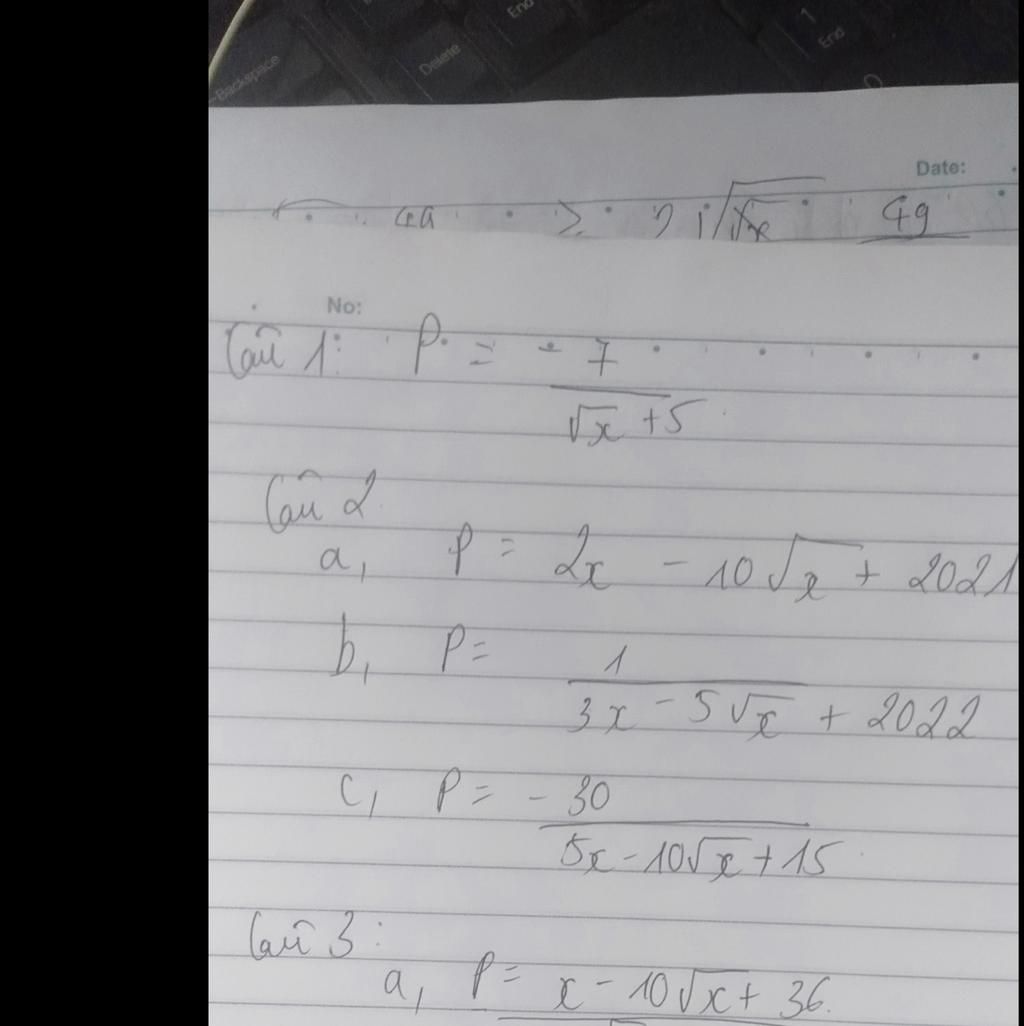 End
Backspace
Delete
1
End
0
Date:
√x 49
No:
Câu 1: P = - 7
√x + 5
Câu 2
a, P = 2x - 10√x + 2021
b, P = 1
3x - 5√x + 2022
c, P = - 30
5x - 10√x + 15
Câu 3:
a, P = x - 10√x + 36